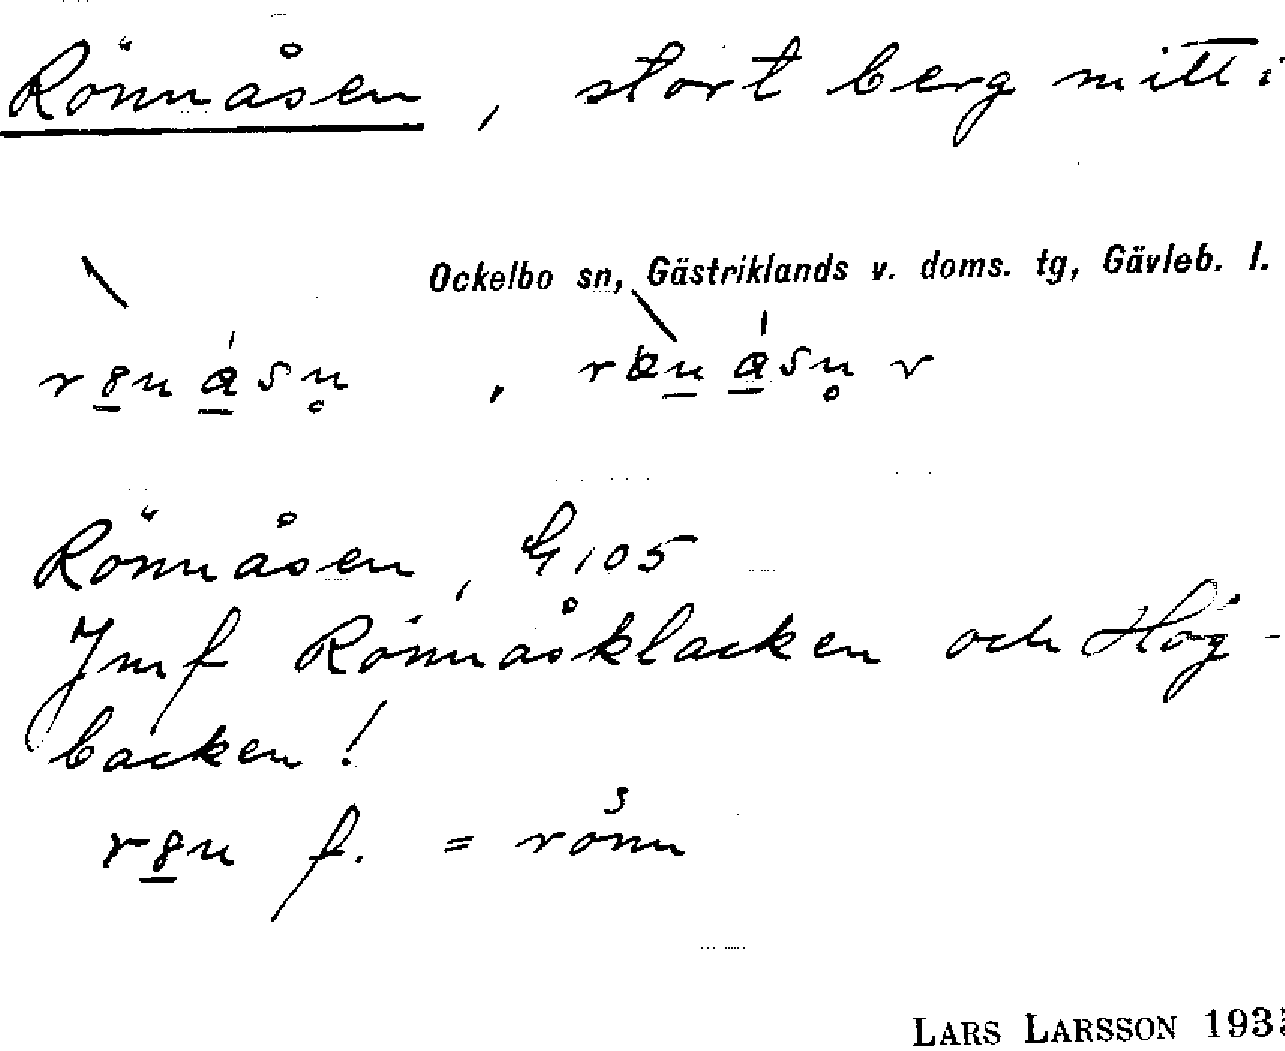 Rönnåsen, stort berg mitt i
Ockelbo sn, Gästriklands v. doms. tg, Gävleb. l.
Rönnåsen, G105
Jmf Rönnåsklacken och Hög-
backen!
f. = rönn
LARS LARSSON 193